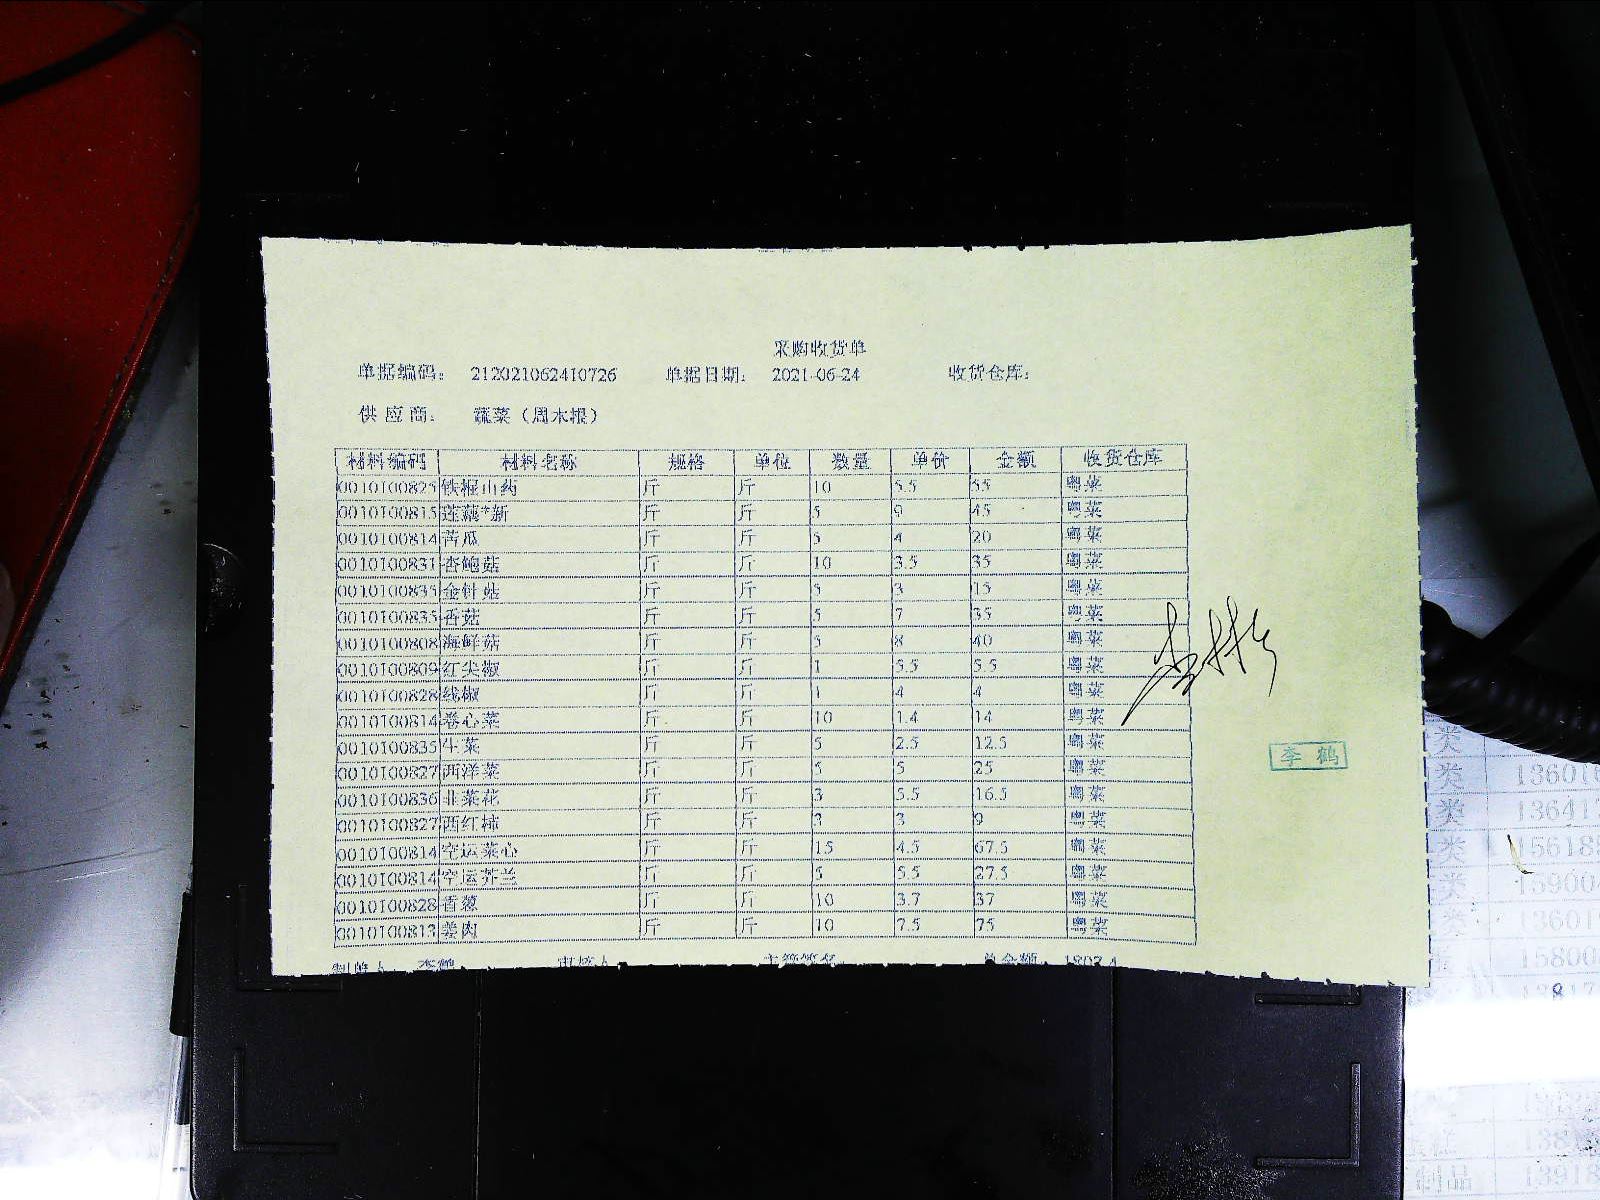 采购收货单
单据编码： 212021062410726 单据日期： 2021-06-24 收货仓库：
供应商： 蔬菜（周木根）
材料编码 材料名称 规格 单位 数量 单价 金额 收货仓库
0010100825 铁棍山药 斤 斤 10 5.5 55 粤菜
0010100815 莲藕*新 斤 斤 5 9 45 粤菜
0010100814 苦瓜 斤 斤 5 4 20 粤菜
0010100831 杏鲍菇 斤 斤 10 3.5 35 粤菜
0010100835 金针菇 斤 斤 5 3 15 粤菜
0010100835 香菇 斤 斤 5 7 35 粤菜
0010100808 海鲜菇 斤 斤 5 8 40 粤菜
0010100809 红尖椒 斤 斤 1 5.5 5.5 粤菜
0010100828 线椒 斤 斤 1 4 4 粤菜
0010100814 卷心菜 斤 斤 10 1.4 14 粤菜
0010100835 生菜 斤 斤 5 2.5 12.5 粤菜
0010100827 西洋菜 斤 斤 5 5 25 粤菜
0010100836 韭菜花 斤 斤 3 5.5 16.5 粤菜
0010100827 西红柿 斤 斤 3 3 9 粤菜
0010100814 空运菜心 斤 斤 15 4.5 67.5 粤菜
0010100814 空运芥兰 斤 斤 5 5.5 27.5 粤菜
0010100828 香葱 斤 斤 10 3.7 37 粤菜
0010100813 姜肉 斤 斤 10 7.5 75 粤菜
制单人 李鹤 审核人 主管签名 总金额： 1807.4
李鹤
类
类 13601
类 13641
类 15618
类 15900
类 13601
15800
13817
制品 13918